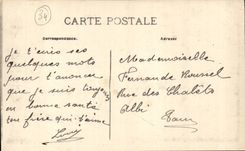 34
CARTE POSTALE
Correspondance.
Adresse
je t'écris ses
quelques mots
pour t'anoncer
que je suis toujours
en bonne santé
ton frère qui t'aime
Mademoiselle
Fernande Roussel
Rue des Chalets
Albi
Tarn